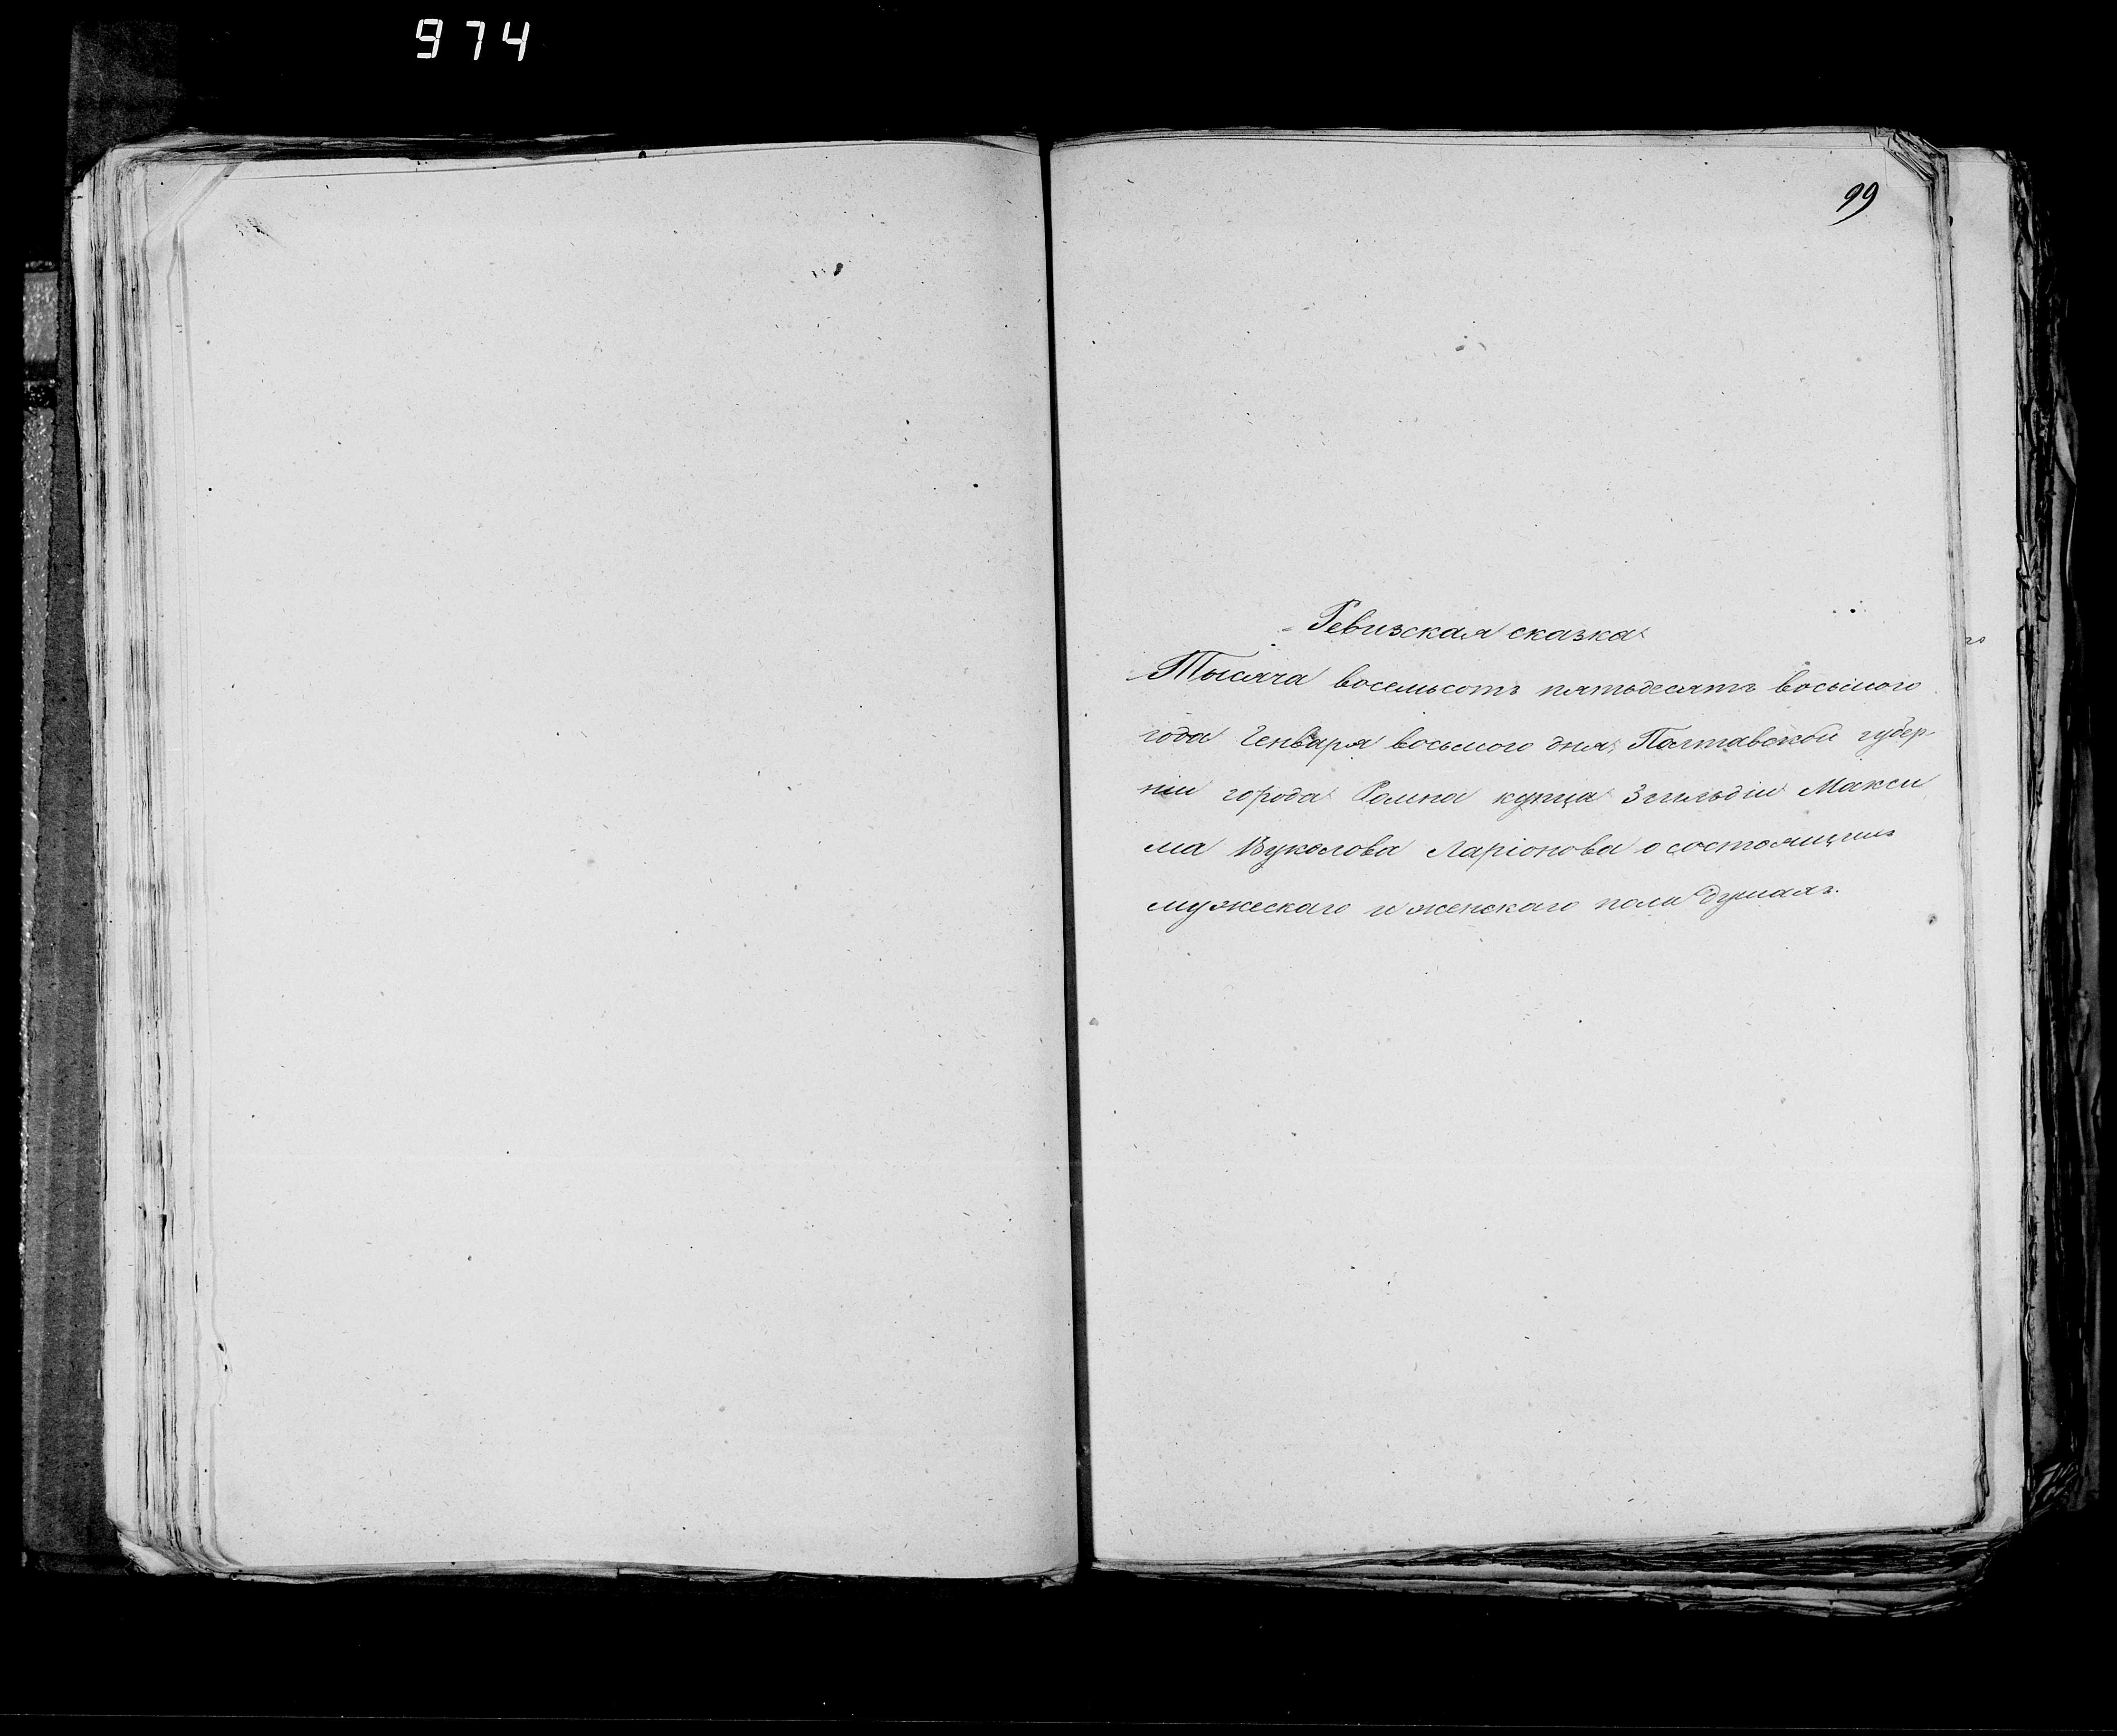 974
99
Ревизская сказка
Тысяча восемьсотъ пятьдесятъ восьмого
года Генваря восьмого дня, Полтавской губер-
ніи города Ромна купца 3 гильдіи Макси
ма Вуколова Ларіонова о состоящихъ
мужескаго и женскаго пола душахъ.